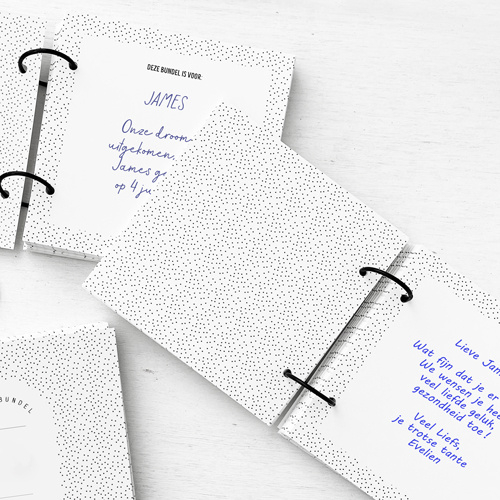 DEZE BUNDEL IS VOOR:
JAMES
Onze droom
uitgekomen.
James
op 4
Lieve
Wat fijn dat je er
We wensen je
veel liefde geluk,
gezondheid toe!
Veel Liefs,
je trotse tante
Evelien
BUNDEL